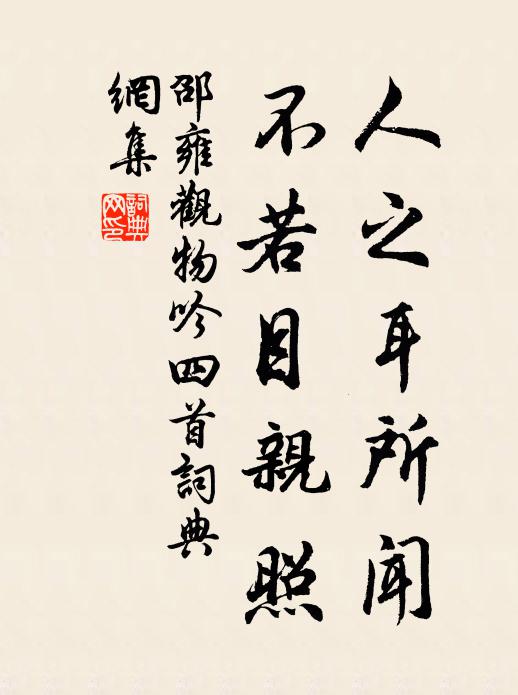 人之耳所聞
不若目親照
邵雍觀物吟四首詞典
網集
詞典
网印